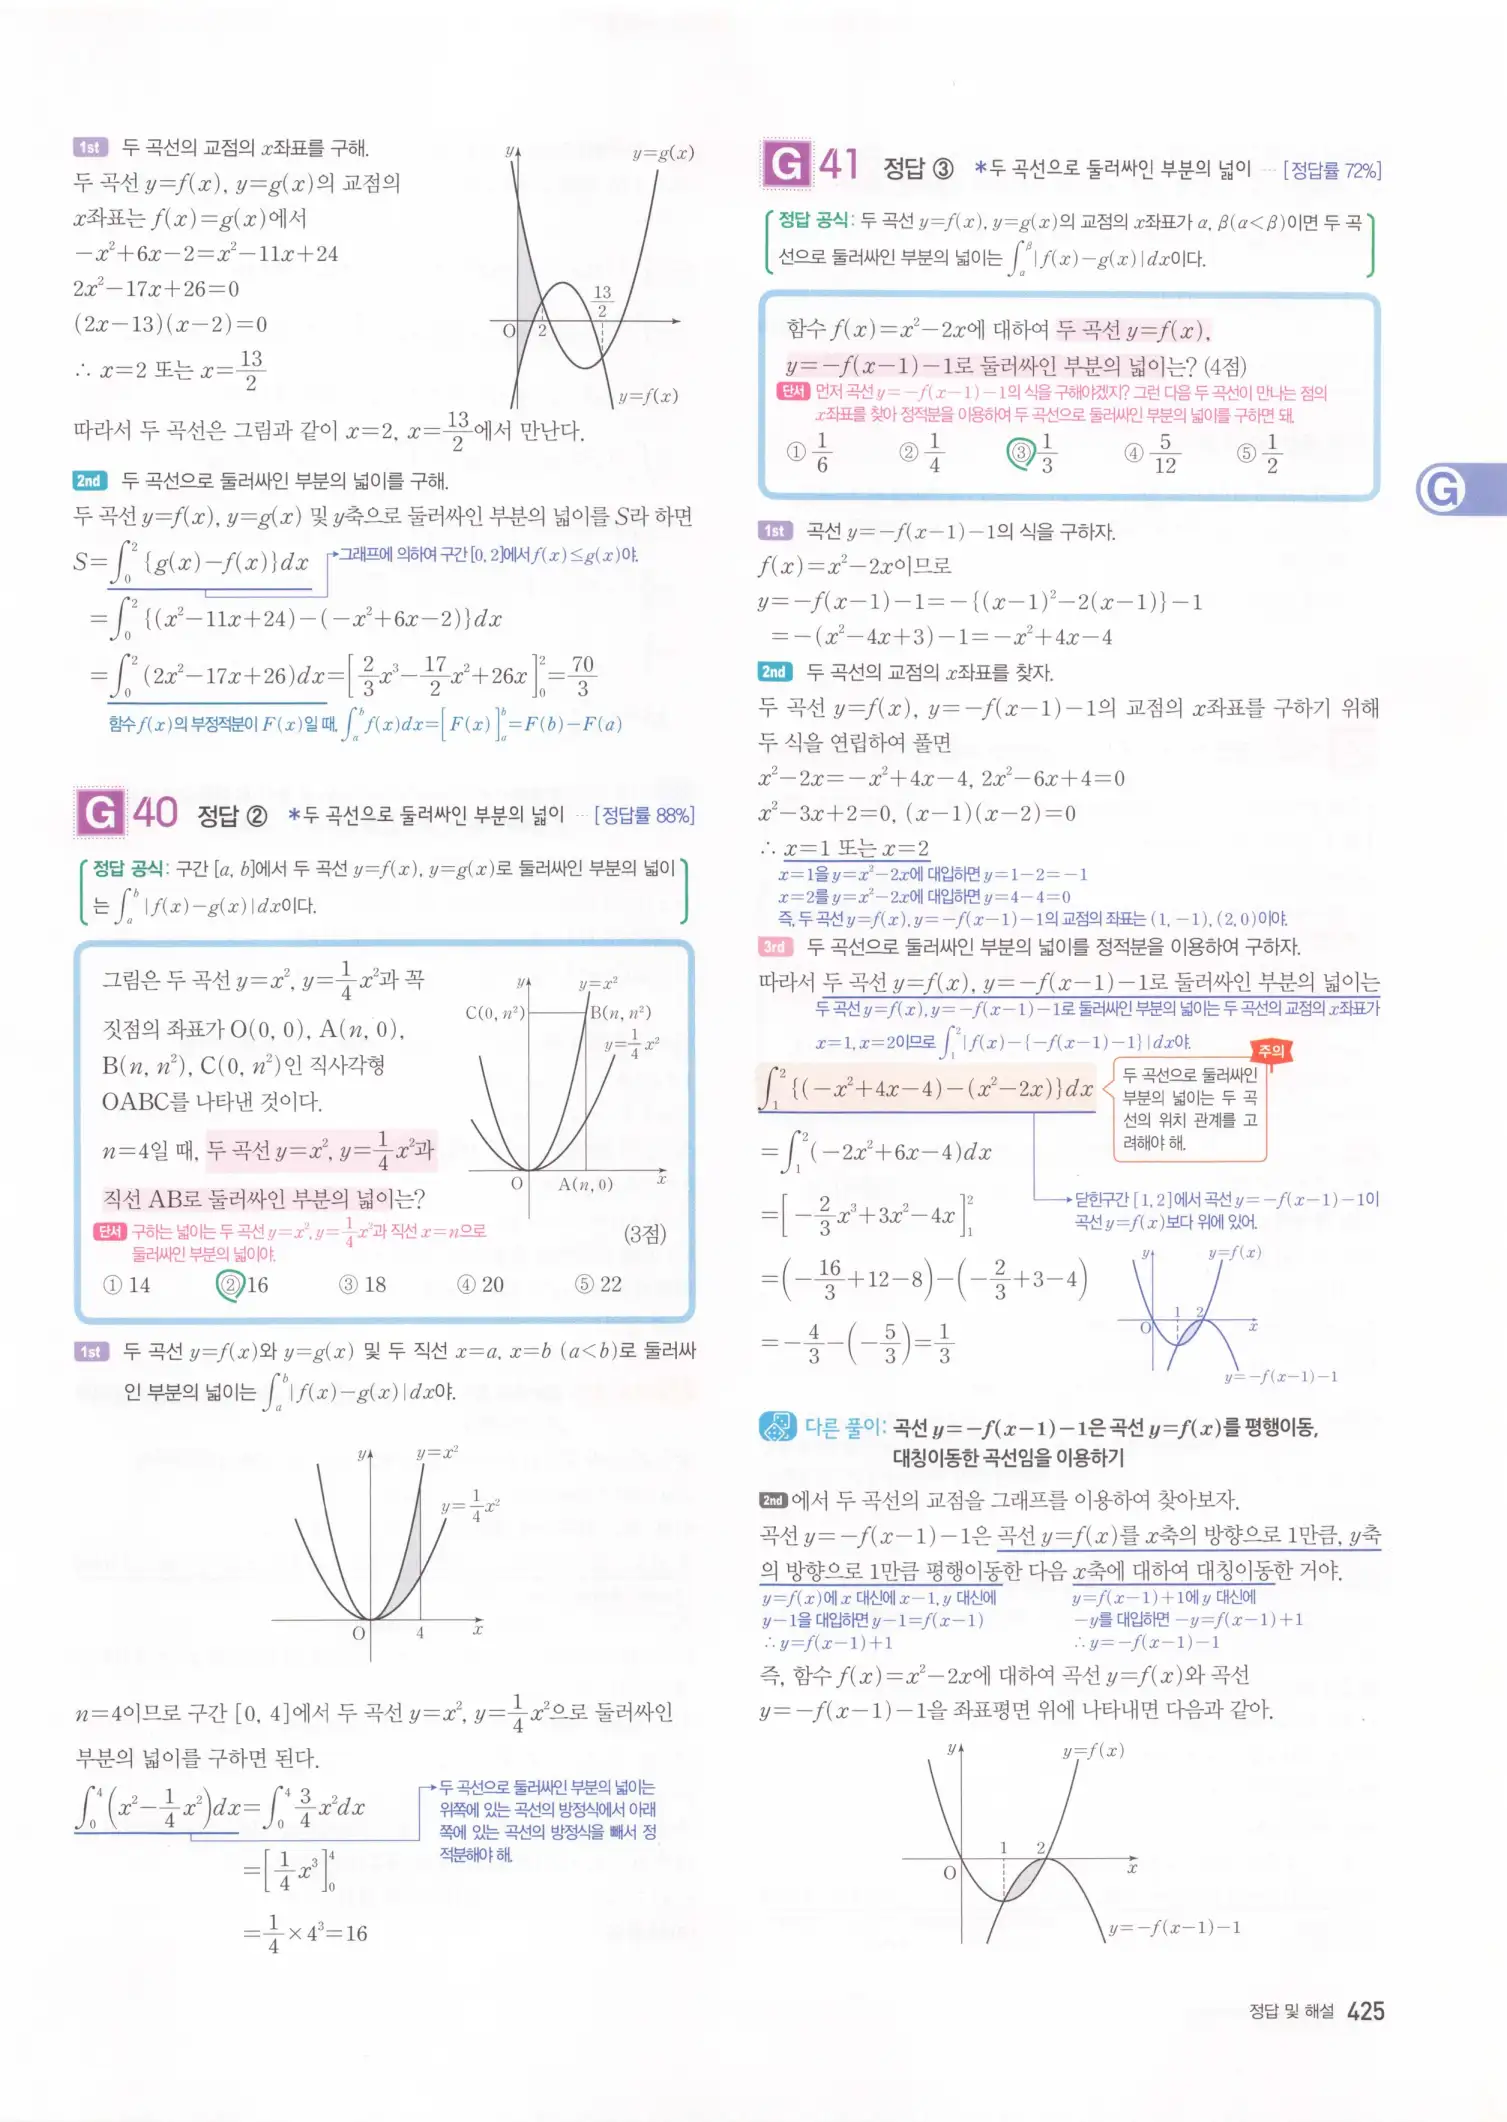 1st 두 곡선의 교점의 x좌표를 구해.
두 곡선 y=f(x), y=g(x)의 교점의
x좌표는 f(x)=g(x)에서
-x²+6x-2=x²-11x+24
2x²-17x+26=0
(2x-13)(x-2)=0
∴ x=2 또는 x=13/2
y
y=g(x)
13/2
O
2
y=f(x)
따라서 두 곡선은 그림과 같이 x=2, x=13/2에서 만난다.
2nd 두 곡선으로 둘러싸인 부분의 넓이를 구해.
두 곡선 y=f(x), y=g(x) 및 y축으로 둘러싸인 부분의 넓이를 S라 하면
S=∫₀² {g(x)-f(x)}dx
그래프에 의하여 구간 [0, 2]에서 f(x)≤g(x)야.
=∫₀² {(x²-11x+24)-(-x²+6x-2)}dx
=∫₀² (2x²-17x+26)dx=[2/3x³-17/2x²+26x]₀²=70/3
함수 f(x)의 부정적분이 F(x)일 때, ∫ₐᵇ f(x)dx=[F(x)]ₐᵇ=F(b)-F(a)
G 40 정답 ② *두 곡선으로 둘러싸인 부분의 넓이 ··· [정답률 88%]
정답 공식: 구간 [a, b]에서 두 곡선 y=f(x), y=g(x)로 둘러싸인 부분의 넓이
는 ∫ₐᵇ |f(x)-g(x)|dx이다.
그림은 두 곡선 y=x², y=1/4x²과 꼭
짓점의 좌표가 O(0, 0), A(n, 0),
B(n, n²), C(0, n²)인 직사각형
OABC를 나타낸 것이다.
n=4일 때, 두 곡선 y=x², y=1/4x²과
직선 AB로 둘러싸인 부분의 넓이는?
(3점)
y
y=x²
C(0, n²)
B(n, n²)
y=1/4x²
O
A(n, 0)
x
단서 구하는 넓이는 두 곡선 y=x², y=1/4x²과 직선 x=n으로
둘러싸인 부분의 넓이야.
① 14 ② 16 ③ 18 ④ 20 ⑤ 22
1st 두 곡선 y=f(x)와 y=g(x) 및 두 직선 x=a, x=b (a<b)로 둘러싸
인 부분의 넓이는 ∫ₐᵇ|f(x)-g(x)|dx야.
y
y=x²
y=1/4x²
O
4
x
n=4이므로 구간 [0, 4]에서 두 곡선 y=x², y=1/4x²으로 둘러싸인
부분의 넓이를 구하면 된다.
∫₀⁴(x²-1/4x²)dx=∫₀⁴ 3/4x²dx
=[1/4x³]₀⁴
=1/4×4³=16
두 곡선으로 둘러싸인 부분의 넓이는
위쪽에 있는 곡선의 방정식에서 아래
쪽에 있는 곡선의 방정식을 빼서 정
적분해야 해.
G 41 정답 ③ *두 곡선으로 둘러싸인 부분의 넓이 ··· [정답률 72%]
정답 공식: 두 곡선 y=f(x), y=g(x)의 교점의 x좌표가 α, β(α<β)이면 두 곡
선으로 둘러싸인 부분의 넓이는 ∫ₐᵝ|f(x)-g(x)|dx이다.
함수 f(x)=x²-2x에 대하여 두 곡선 y=f(x),
y=-f(x-1)-1로 둘러싸인 부분의 넓이는? (4점)
단서 먼저 곡선 y=-f(x-1)-1의 식을 구해야겠지? 그런 다음 두 곡선이 만나는 점의
x좌표를 찾아 정적분을 이용하여 두 곡선으로 둘러싸인 부분의 넓이를 구하면 돼.
① 1/6 ② 1/4 ③ 1/3 ④ 5/12 ⑤ 1/2
G
1st 곡선 y=-f(x-1)-1의 식을 구하자.
f(x)=x²-2x이므로
y=-f(x-1)-1=-{(x-1)²-2(x-1)}-1
=-(x²-4x+3)-1=-x²+4x-4
2nd 두 곡선의 교점의 x좌표를 찾자.
두 곡선 y=f(x), y=-f(x-1)-1의 교점의 x좌표를 구하기 위해
두 식을 연립하여 풀면
x²-2x=-x²+4x-4, 2x²-6x+4=0
x²-3x+2=0, (x-1)(x-2)=0
∴ x=1 또는 x=2
x=1을 y=x²-2x에 대입하면 y=1-2=-1
x=2를 y=x²-2x에 대입하면 y=4-4=0
즉, 두 곡선 y=f(x), y=-f(x-1)-1의 교점의 좌표는 (1, -1), (2, 0)이야.
3rd 두 곡선으로 둘러싸인 부분의 넓이를 정적분을 이용하여 구하자.
따라서 두 곡선 y=f(x), y=-f(x-1)-1로 둘러싸인 부분의 넓이는
두 곡선 y=f(x), y=-f(x-1)-1로 둘러싸인 부분의 넓이는 두 곡선의 교점의 x좌표가
x=1, x=2이므로 ∫₁²|f(x)-{-f(x-1)-1}|dx야.
∫₁² {(-x²+4x-4)-(x²-2x)}dx
주의
두 곡선으로 둘러싸인
부분의 넓이는 두 곡
선의 위치 관계를 고
려해야 해.
=∫₁²(-2x²+6x-4)dx
=[-2/3x³+3x²-4x]₁²
닫힌구간 [1, 2]에서 곡선 y=-f(x-1)-1이
곡선 y=f(x)보다 위에 있어.
=(-16/3+12-8)-(-2/3+3-4)
=-4/3-(-5/3)=1/3
y
y=f(x)
1 2
O
x
y=-f(x-1)-1
다른 풀이: 곡선 y=-f(x-1)-1은 곡선 y=f(x)를 평행이동,
대칭이동한 곡선임을 이용하기
2nd 에서 두 곡선의 교점을 그래프를 이용하여 찾아보자.
곡선 y=-f(x-1)-1은 곡선 y=f(x)를 x축의 방향으로 1만큼, y축
의 방향으로 1만큼 평행이동한 다음 x축에 대하여 대칭이동한 거야.
y=f(x)에 x 대신에 x-1, y 대신에
y-1을 대입하면 y-1=f(x-1)
∴ y=f(x-1)+1
y=f(x-1)+1에 y 대신에
-y를 대입하면 -y=f(x-1)+1
∴ y=-f(x-1)-1
즉, 함수 f(x)=x²-2x에 대하여 곡선 y=f(x)와 곡선
y=-f(x-1)-1을 좌표평면 위에 나타내면 다음과 같아.
y
y=f(x)
1 2
O
x
y=-f(x-1)-1
정답 및 해설 425